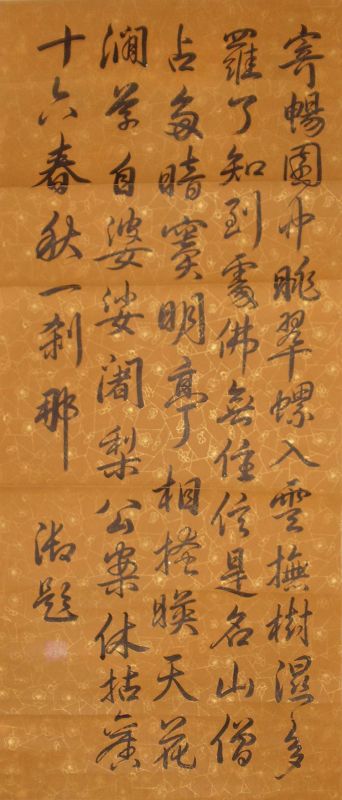 寄暢園中眺翠螺入雲撫樹濕多
羅了知到處佛無住信是名山僧
占多暗竇明亭相掩暎天花
澗草自婆娑闍梨公案休拈舊
十六春秋一剎那 御題